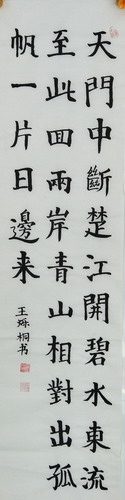 天門中斷楚江開碧水東流
至此回兩岸青山相對出孤
帆一片日邊来
王殊桐书